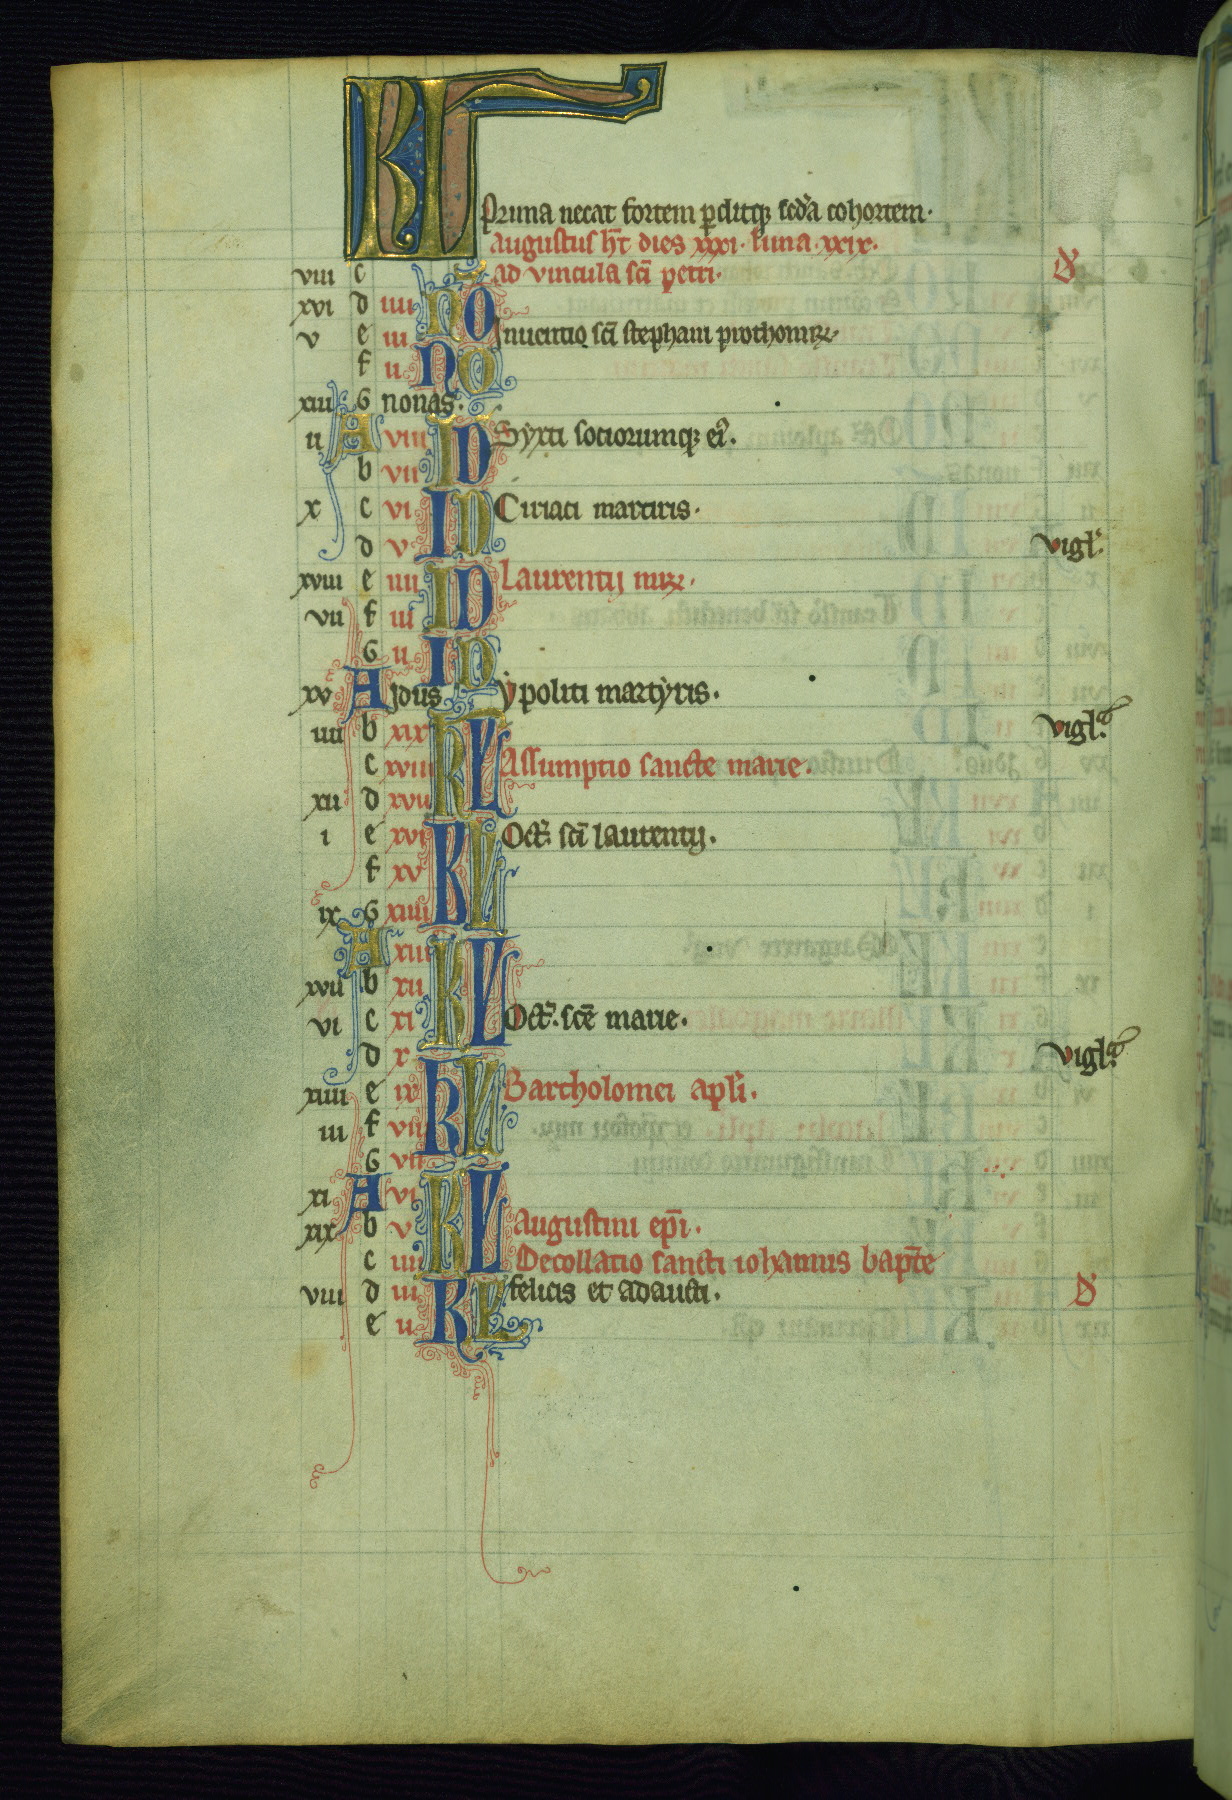 KL
Pruna necat fortem ꝑditqꝫ scda cohortem.
Augustus ht dies xxxi. luna. xxix.
viii c ad vincula sci petri.
xvi d iiii NO
v e iii Inuentio sci stephani prothomꝝ.
f ii NO
xiii G nonas.
ii A viii ID Syxti sociorumqꝫ ei.
b vii
x c vi ID Ciriaci martiris.
d v vigl.
xviii e iiii ID Laurentij mꝝ.
vii f iii
G ii ID
xv A Idus ypoliti martyris.
iiii b xix KL vigl.
c xviii Assumptio sancte marie.
xii d xvii
i e xvi KL Oct. sci laurentij.
f xv
ix G xiiii
A xiii KL
xvii b xii
vi c xi Oct. sce marie.
d x vigl.
xiiii e ix KL Bartholomei apli.
iii f viii
G vii
xi A vi KL
xix b v Augustini epi.
c iiii Decollatio sancti iohannis bapte
viii d iii KL felicis et adaucti. D
e ii